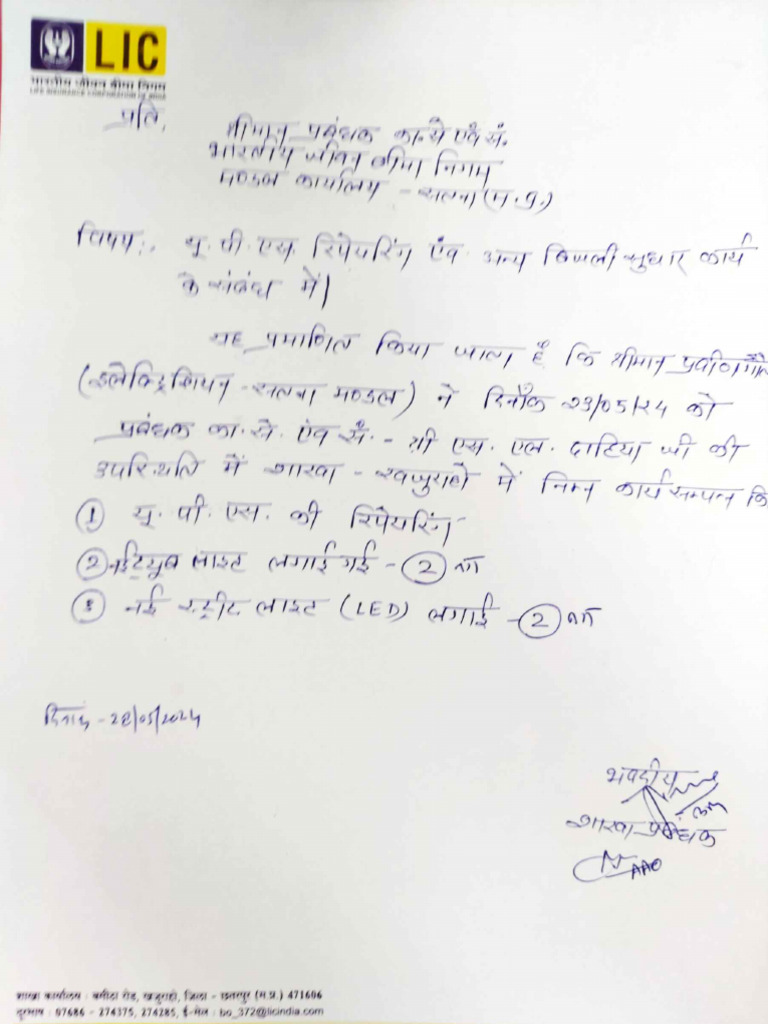 LIC
भारतीय जीवन बीमा निगम
LIFE INSURANCE CORPORATION OF INDIA
प्रति,
श्रीमान प्रबंधक का.से एवं सं.
भारतीय जीवन बीमा निगम
मण्डल कार्यालय - सतना (म.प्र.)
विषय:- यू. पी. एस. रिपेयरिंग एंव अन्य बिजली सुधार कार्य
के संबंध में।
यह प्रमाणित किया जाता है कि श्रीमान प्रवीण
(इलेक्ट्रिशियन - सतना मण्डल) ने दिनाँक 23/05/24 को
प्रबंधक का. से. एंव सं. - श्री एस. एल. दाटिया जी की
उपस्थिति में शाखा - खजुराहो में निम्न कार्य सम्पन्न कि
① यू. पी. एस. की रिपेयरिंग
② नई ट्यूब लाइट लगाई गई - ② नग
③ नई स्ट्रीट लाइट (LED) लगाई - ② नग
दिनांक - 28/05/2024
भवदीय
शाखा प्रबंधक
AAO
शाखा कार्यालय : बमीठा रोड, खजुराहो, जिला - छतरपुर (म.प्र.) 471606
दूरभाष : 07686 - 274375, 274285, ई-मेल : bo_372@licindia.com